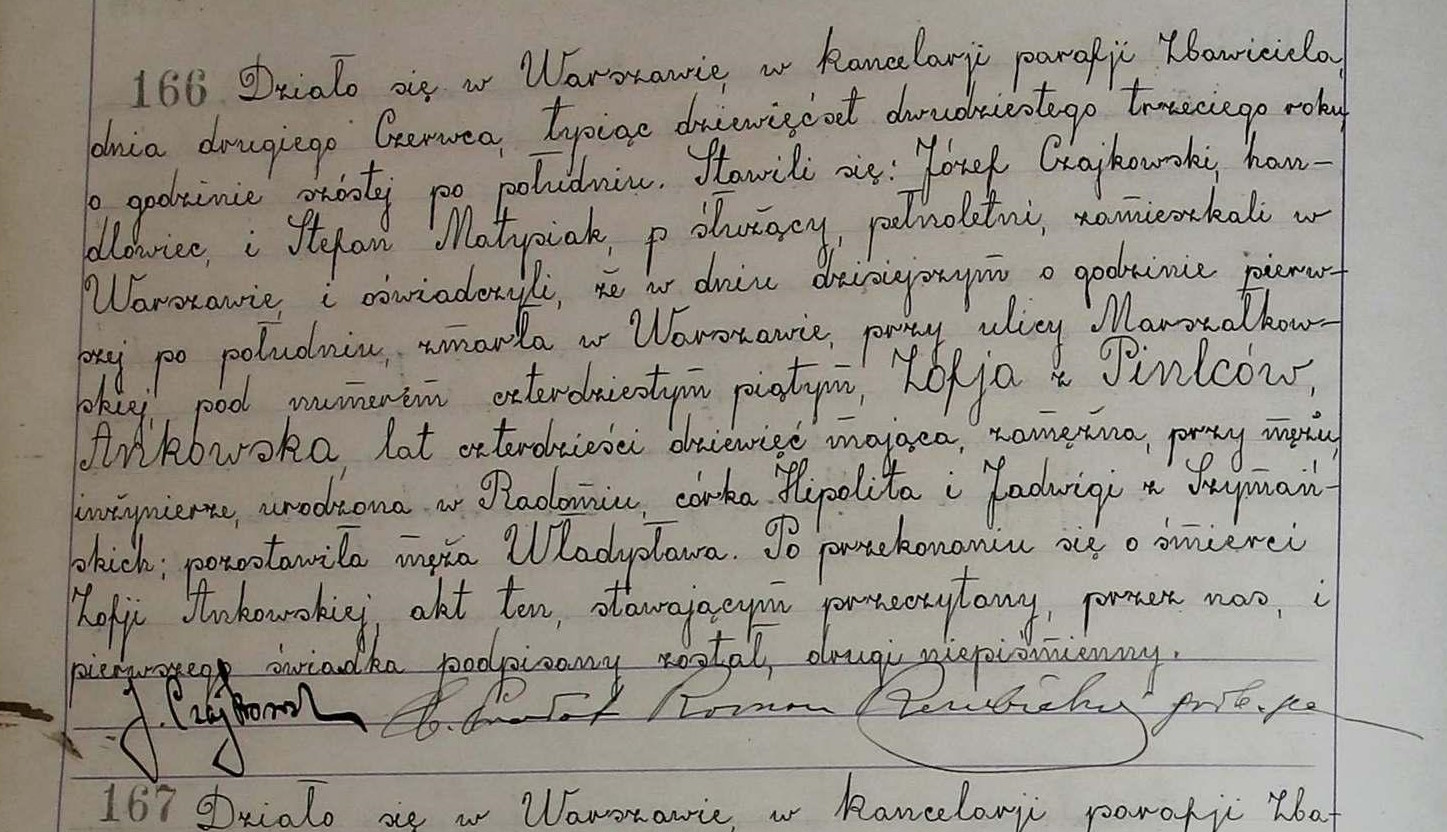 166 Działo się w Warszawie, w kancelarji parafji Zbawiciela,
dnia drugiego Czerwca, tysiąc dziewięćset dwudziestego trzeciego roku,
o godzinie szóstej po południu. Stawili się: Józef Czajkowski, han-
dlowiec, i Stefan Matysiak, p służący, pełnoletni, zamieszkali w
Warszawie, i oświadczyli, że w dniu dzisiejszym o godzinie pierw-
szej po południu, zmarła w Warszawie, przy ulicy Marszałkow-
skiej, pod numerem czterdziestym piątym, Zofja z Pintców,
Ankowska, lat czterdzieści dziewięć mająca, zamężna, przy mężu,
inżynierze, urodzona w Radomiu, córka Hipolita i Jadwigi z Szymań-
skich; pozostawiła męża Władysława. Po przekonaniu się o śmierci
Zofji Ankowskiej, akt ten, stawającym przeczytany, przez nas, i
pierwszego świadka podpisany został, drugi niepiśmienny.
J. Czajkowski Roman
167 Działo się w Warszawie, w kancelarji parafji Zba-